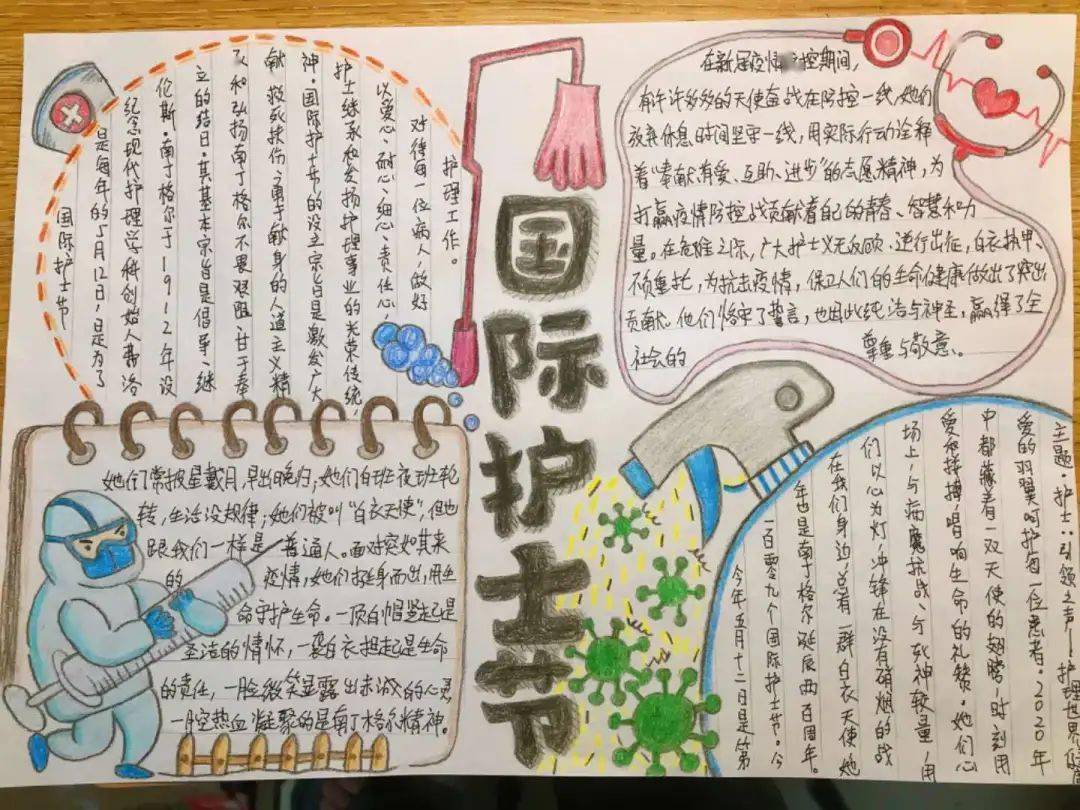 国际护士节
国际护士节
是每年的5月12日，是为了
纪念现代护理学科创始人弗洛
伦斯·南丁格尔于1912年设
立的结日·其基本宗旨是倡导、继
承和弘扬南丁格尔不畏艰险、甘于奉
献、救死扶伤、勇于献身的人道主义精
神·国际护士节的设立宗旨是激发广大
护士继承和发扬护理事业的光荣传统，
以爱心、耐心、细心、责任心，
对待每一位病人，做好
护理工作。
在新冠疫情控期间，
有许许多多的天使奋战在防控一线，她们
放弃休息时间坚守一线，用实际行动诠释
着“奉献有爱、互助、进步”的志愿精神，为
打赢疫情防控战贡献着自己的青春、智慧和力
量。在危难之际，广大护士义无反顾、逆行出征，白衣执甲、
不负重托，为抗击疫情，保卫人们的生命健康做出了突出
贡献。他们恪守了誓言，也因此纯洁与神圣，赢得了全
社会的 尊重与敬意。
她们常披星戴月，早出晚归，她们白班夜班轮
转，生活没规律；她们被叫“白衣天使”，但也
跟我们一样是普通人。面对突如其来
的疫情，她们挺身而出，用生
命守护生命。一顶白帽竖起是
圣洁的情怀，一袭白衣担起是生命
的责任，一脸微笑显露出赤诚的心灵，
一腔热血凝聚的是南丁格尔精神。
今年五月十二日是第
一百零九个国际护士节。今
年也是南丁格尔诞辰两百周年。
在我们身边，总有一群白衣天使，她
们以心为灯，冲锋在没有硝烟的战
场上，与病魔抗战、与死神较量，用
爱和拼搏，唱响生命的礼赞。她们心
中都藏着一双天使的翅膀，时刻用
爱的羽翼呵护每一位患者。2020年
主题·护士：引领之声——护理世界健康